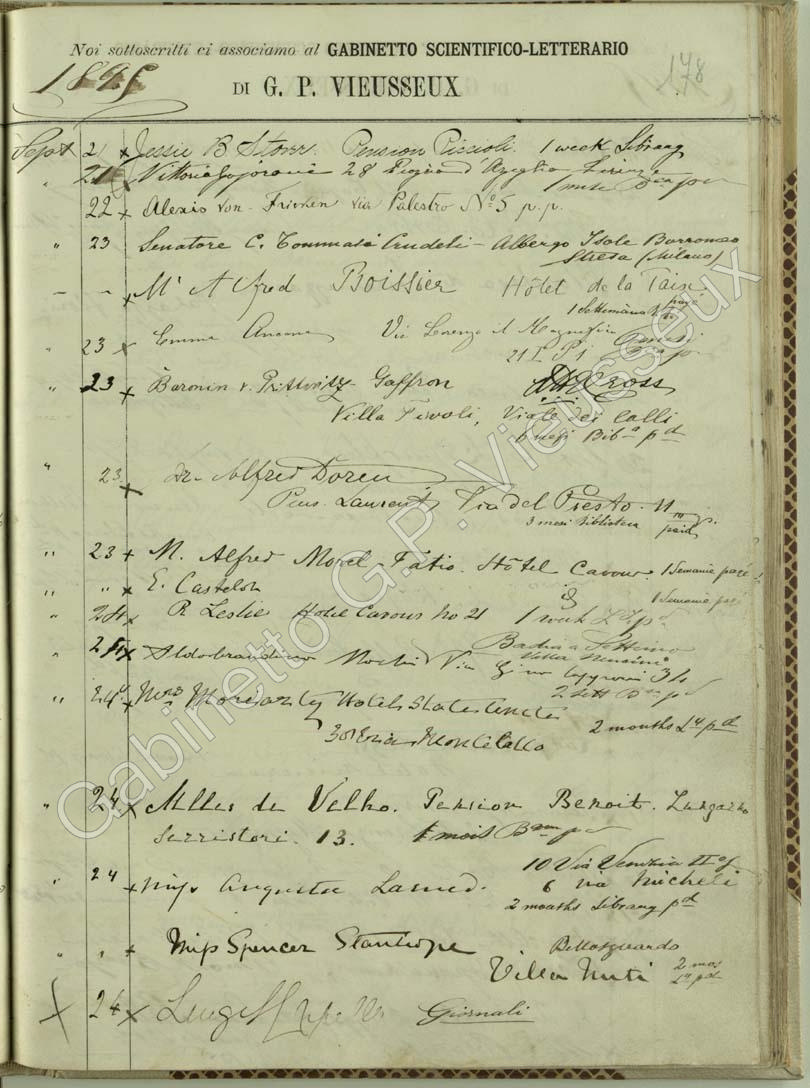 Noi sottoscritti ci associamo al GABINETTO SCIENTIFICO-LETTERARIO
178
1895
DI G. P. VIEUSSEUX
Sept 21 x Jessie B Storr. Pension Piccioli. 1 week Library
" 21 x Vittoria 28 Piazza d'Azeglio Firenze
1 mese
22 x Alexis von Fricken via Palestro No 5 p.p.
" 23 Senatore C. Tommasi Crudeli - Albergo Isole Borromeo
Stresa (Milano)
- - x Mr Alfred Boissier Hôtel de la Paix
1 Settimana
payé
" 23 x Emma Via Lorenzo il Magnifico
21 I. P
" 23 x Baronin v. Prittwitz-Gaffron Cross
Villa Tivoli, Viale dei Colli
6 mesi Biba pd
" 23 x Dr Alfred Doren
Pens. Laurent, Via del Presto. 11
3 mesi biblioteca paid
" 23 x M. Alfred Morel-Fatio. Hôtel Cavour. 1 Semaine payé
" " x E. Castelot 1 Semaine payé
" 24 x R Leslie Hotel Cavour No 21 1 week Ly pd
" 24 x Aldobrandino Via Gino Capponi 3
Badia a Settimo
2 Sett
" 24 x Mrs Moriarty Hotel
2 months Ly pd
30 Via Montebello
" 24 x Mlles de Velho. Pension Benoit. Lungarno
Serristori. 13. 1 mois
" 24 x Miss Augusta Larned.
10 Via Venezia
6 via Micheli
2 months Library pd
" " x Miss Spencer Stanhope Bellosguardo
Villa Nuti 2 mos
Ly pd
x 24 x Luigi Giornali
Gabinetto G.P. Vieusseux